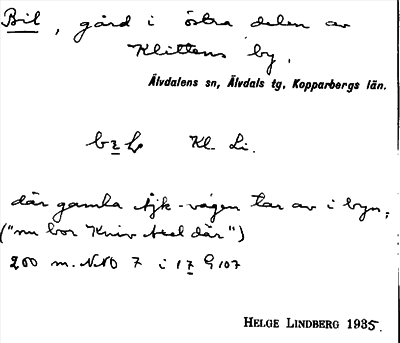 Bil, gård i östra delen av
Klittens by,
Älvdalens sn, Älvdals tg, Kopparbergs län.
Kl. Li.
där gamla Åjk-vägen tar av i byn,
("nu bor Kniv Axel där")
200 m. NNO 7 i 17 G 107
HELGE LINDBERG 1935.